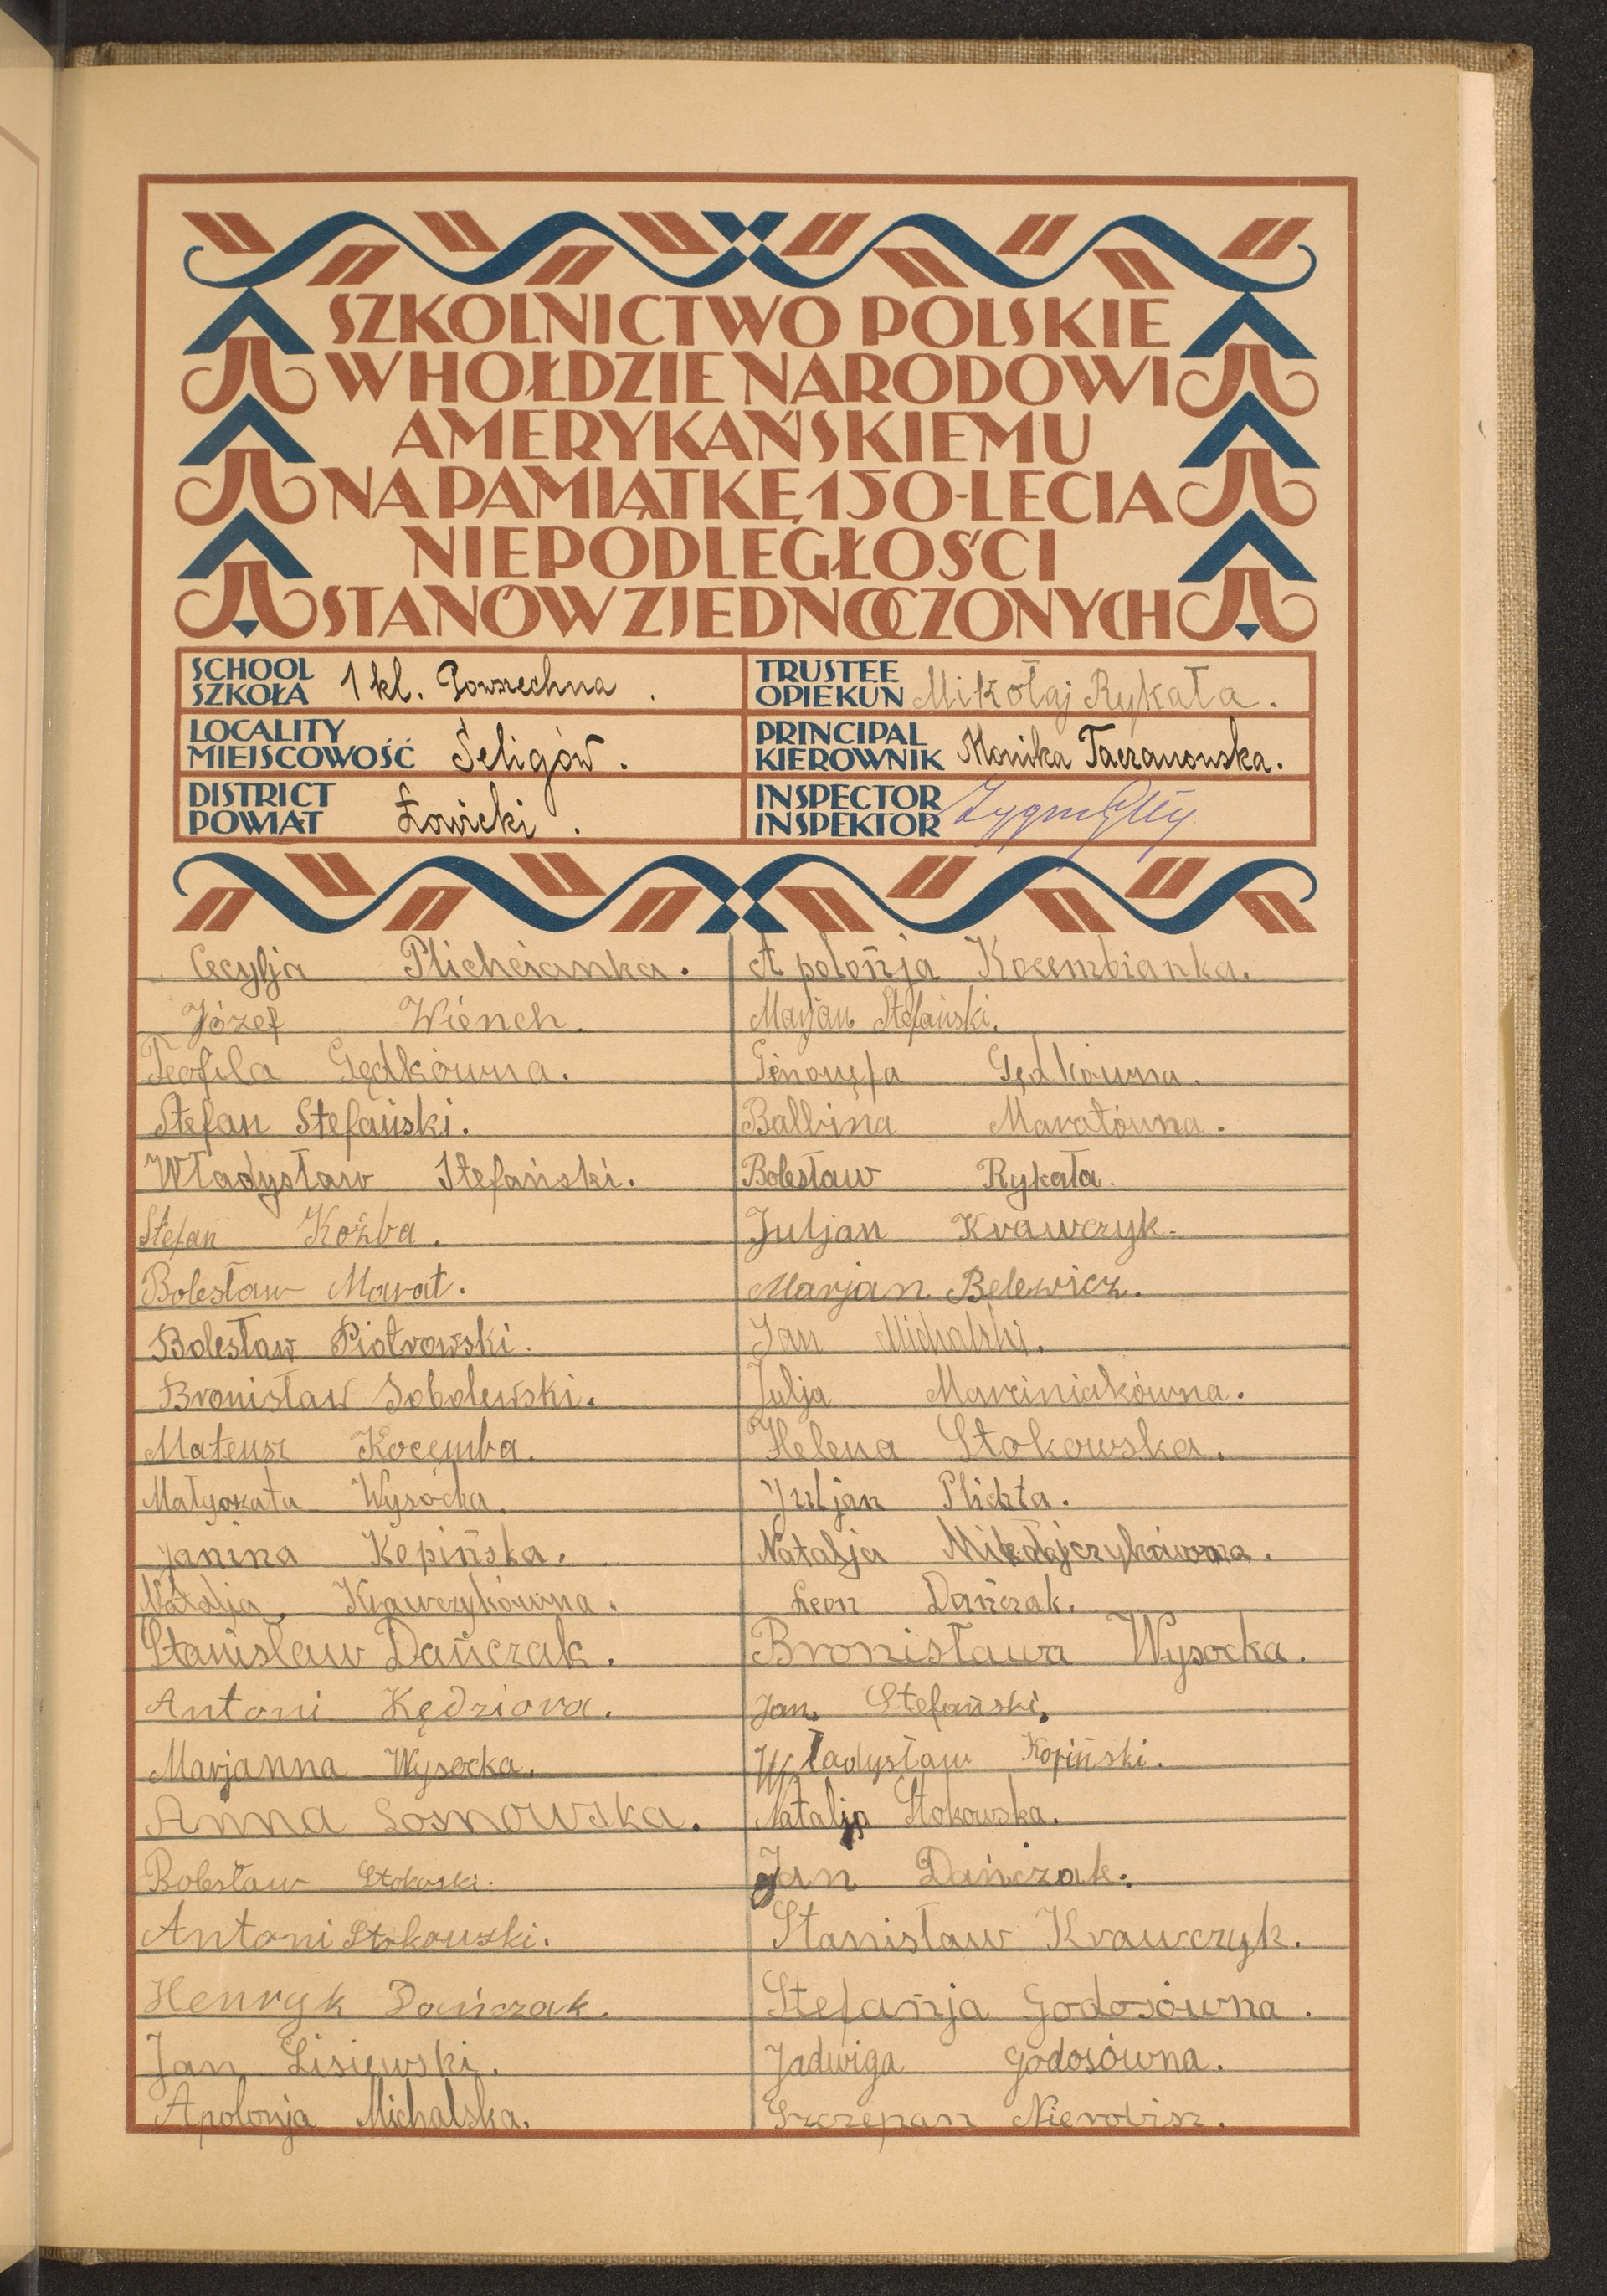 SZKOLNICTWO POLSKIE
W HOŁDZIE NARODOWI
AMERYKAŃSKIEMU
NA PAMIĄTKĘ 150-LECIA
NIEPODLEGŁOŚCI
STANÓW ZJEDNOCZONYCH
SCHOOL
SZKOŁA 1 kl. Powszechna.
TRUSTEE
OPIEKUN Mikołaj Rykała.
LOCALITY
MIEJSCOWOŚĆ Seligów.
PRINCIPAL
KIEROWNIK Monika Taczanowska.
DISTRICT
POWIAT Łowicki.
INSPECTOR
INSPEKTOR
Cecylja Plichcianka.
Józef Wiench.
Teofila Gędkówna.
Stefan Stefański.
Władysław Stefański.
Stefan Koźba.
Bolesław Marat.
Bolesław Piotrowski.
Bronisław Sobolewski.
Mateusz Kocemba.
Małgorzata Wysocka.
Janina Kopińska.
Natalja Krawczykówna.
Stanisław Dańczak.
Antoni Kędziora.
Marjanna Wysocka.
Anna Sosnowska.
Bolesław Stokoski.
Antoni Stokowski.
Henryk Dańczak.
Jan Lisiewski.
Apolonja Michalska.
Apolońja Kocembianka.
Marjan Stefański.
Genowefa Gędkówna.
Balbina Maratówna.
Bolesław Rykała.
Juljan Krawczyk.
Marjan Belewicz.
Jan Michalski.
Julja Marciniakówna.
Helena Stokowska.
Juljan Plichta.
Natalja Mikołajczykówna.
Leon Dańczak.
Bronisława Wysocka.
Jan Stefański.
Władysław Kopiński.
Natalja Stokowska.
Jan Dańczak.
Stanisław Krawczyk.
Stefańja Godosówna.
Jadwiga Godosówna.
Szczepan Nierobisz.